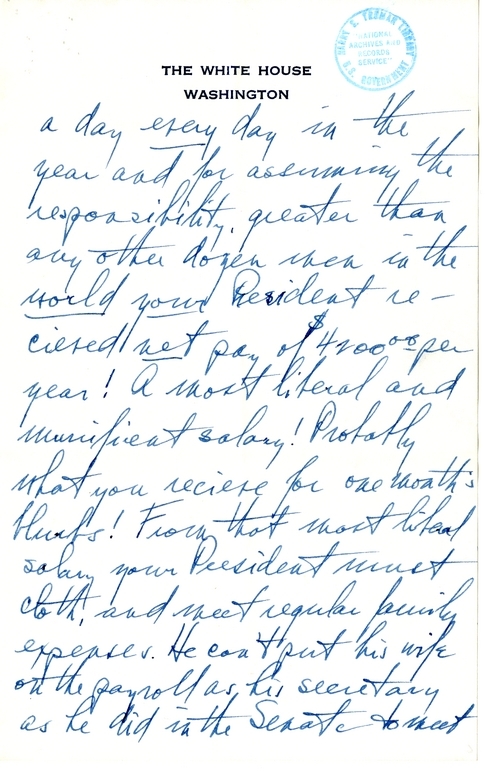 HARRY S. TRUMAN LIBRARY
"NATIONAL
ARCHIVES AND
RECORDS
SERVICE"
U.S. GOVERNMENT
THE WHITE HOUSE
WASHINGTON
a day every day in the
year and for assuming the
responsibility, greater than
any other dozen men in the
world your President re-
cieved net pay of $4200 00 per
year! A most liberal and
munificient salary! Probably
what you recieve for one month's
blurbs! From that most liberal
salary your President must
cloth, and meet regular family
expenses. He can't put his wife
on the payroll as his secretary
as he did in the Senate to meet